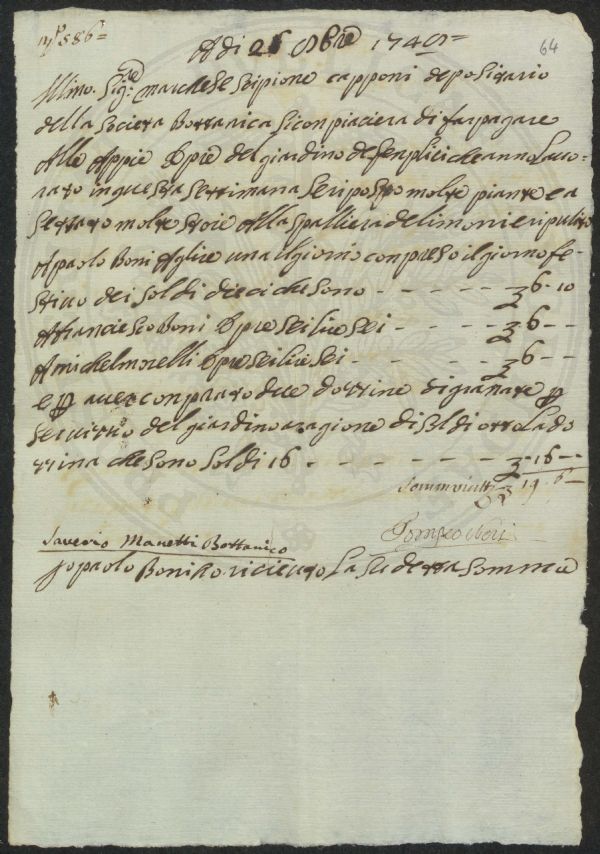 586
64
Adi 26 8bre 1749
Illmo. Sigre. marchese Scipione capponi depositario
della Societa Bottanica Si conpiacera di far pagare
Alle Appie Opre del giardino de senplici che anno Lavo
rato in questa Settimana Se riposto molte piante e a
Settato molte stoie Alla Spalliera de limoni e ripulito
A paolo Boni Aglire una il giorno conpreso il giorno fe-
stivo dei Soldi dieci che sono - - - - - - 6-10
A Franciesco Boni Opre sei lire sei - - - - - 6--
A michel morelli Opre sei lire sei - - - - - 6--
e p aver conprato due dozzine di granate p
Servizio del giardino a ragione di Soldi otto La do
zzina che sono Soldi 16 - - - - - - -16--
19 6-
Saverio Manetti Bottanico
Pompeo Neri
Jo paolo Boni ho ricieuto La Su detta Somma